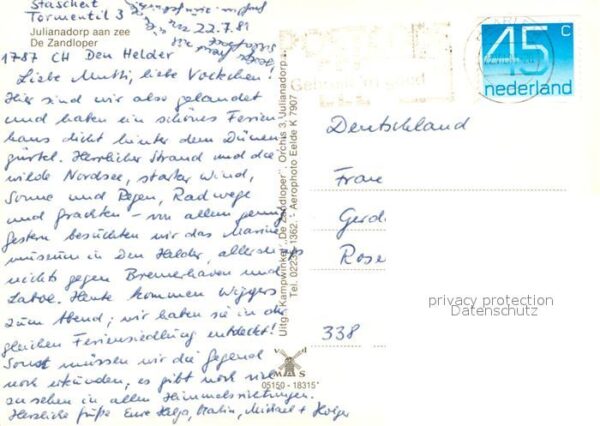 Stascheit
Tormentil 3
22.7.81
Julianadorp aan zee
De Zandloper
1787 CH Den Helder
Liebe Mutti, liebe
Hier sind wir also gelandet
und haben ein schönes Ferien-
haus dicht hinter dem Dünen-
gürtel. Herrlicher Strand und die
wilde Nordsee, starker Wind,
Sonne und Regen, Radwege
und Grachten – von allem genug
gestern besuchten wir das Marine
museum in Den Helder, allerdings
nichts gegen Bremerhaven und
Laboe. Heute kommen
zum Abend; wir haben sie in der
gleichen Feriensiedlung entdeckt!
Sonst müssen wir die Gegend
noch erkunden, es gibt noch viel
zu sehen in allen Himmelsrichtungen.
Herzliche Grüße Eure Helga, Michael + Holger
Uitg.: Kampwinkel „De Zandloper", Orchis 3, Julianadorp a
Tel. 02230-1362. - Aerophoto Eelde K 7907
MAS
05150 - 18315*
45 c
nederland
Deutschland
Frau
Gerd
Rose
338
privacy protection
Datenschutz